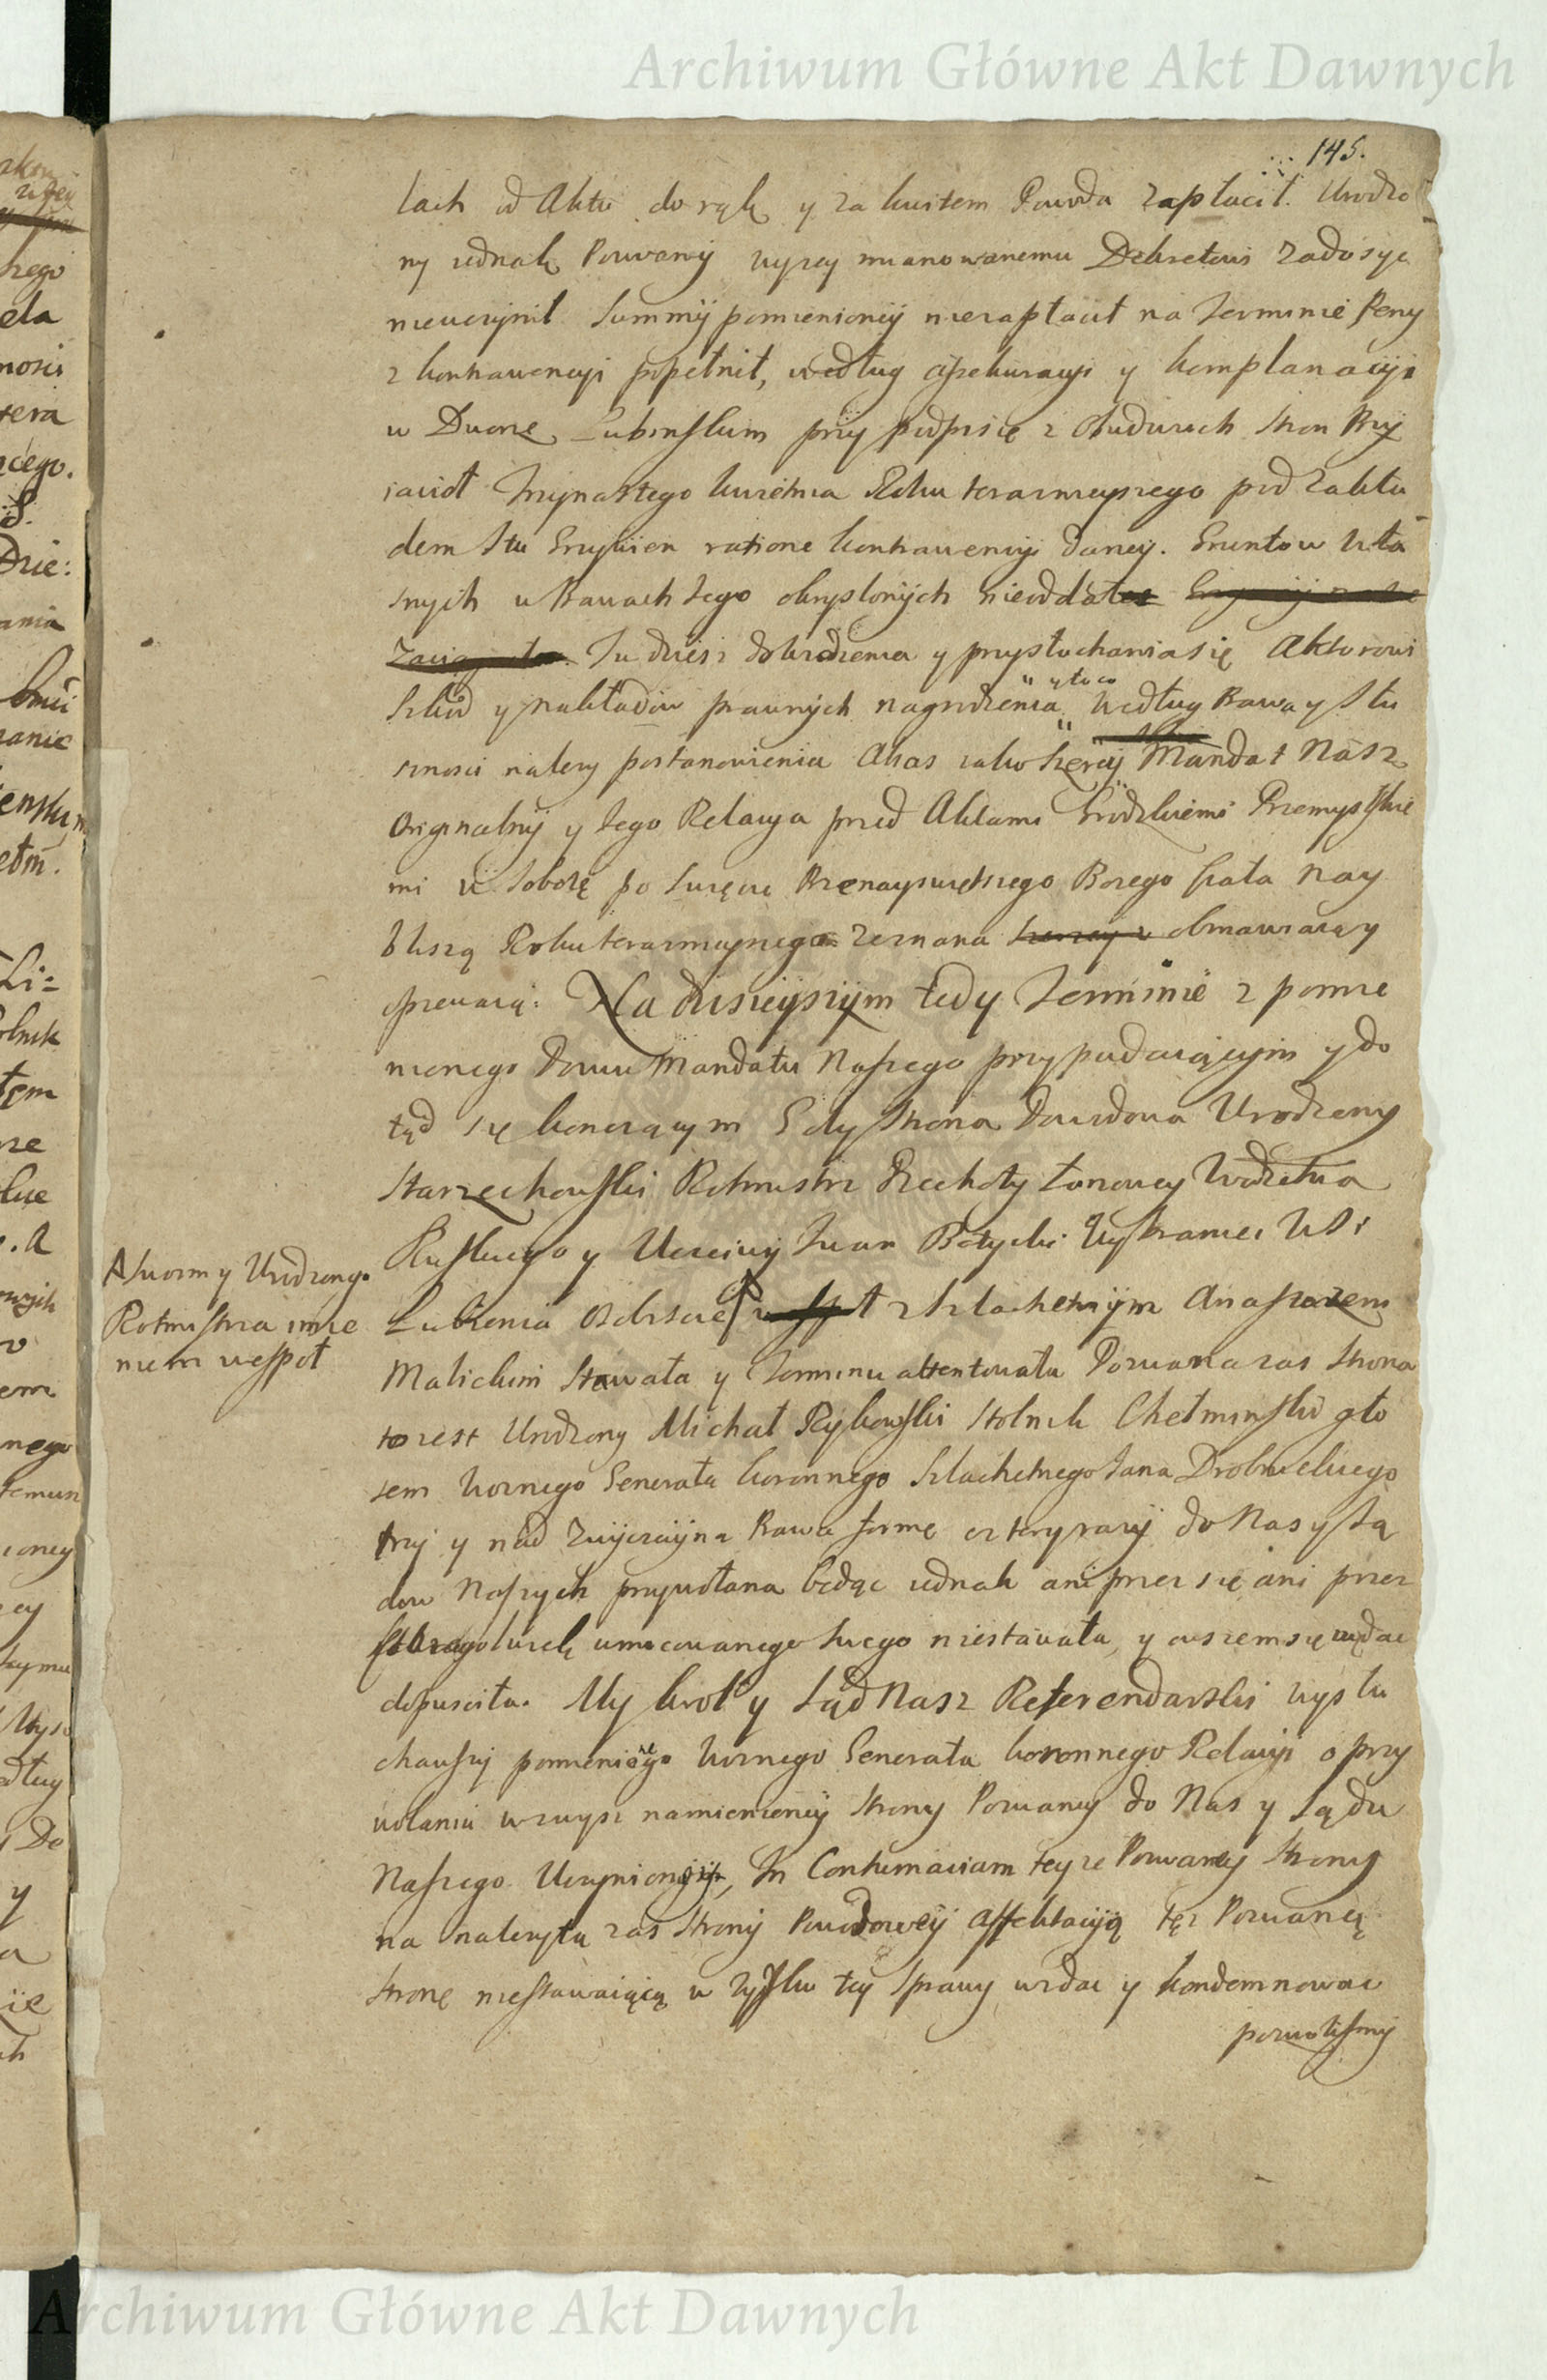 Archiwum Główne Akt Dawnych
145.
lach od Aktu do rąk y za kwitem Powoda zapłacił. Urodzo
ny jednak Pozwany wyzey mianowanemu Dekretowi zadosyc
nieuczynił Summy pomienioney niezapłacił na Terminie Peny
z kontrawencyi popełnił, według assekuracyi y komplanacyi
w Dworze Lubinskim przy podpisie z obudwuch stron Przy
iacioł Trzynastego kwietnia Roku teraznieyszego pod zakła
dem Stu Grzywien ratione kontrawencyi daney. Gruntow wła
snych w Prawach Jego okryslonych nieoddał
Tudziesz dowodzenia y przysłuchania się Aktorowi
Szkod y nakładow prawnych nagrodzenia y to co według Prawa y Słu
sznosci nalezy postanowienia Asas iako szerzey Mandat Nasz
Originalny y Jego Relacya przed Aktami Grodzkiemi Przemyskie
mi w Sobotę po Swięcie Przenayswiętszego Bozego Ciała nay
blizszą Roku teraznieyszego zeznana obmawiaią y
opiewaią: Na dzisieyszym tedy Terminie z pomie
nionego Pozwu Mandatu Naszego przypadaiącym y do
tąd się konczącym Gdy Strona Powodowa Urodzony
Starzechowski Rotmistrz Piechoty Łanowey Woiewodztwa
Ruskiego y Uczciwy Iwan Botycki Wybraniec Wsi
Lubienia Osobiscie z Szlachetnym Anastazem
A Imieniem y Urodzonego
Rotmistrza imie
niem wespoł
Malickim Stawała y Terminu attentowała Pozwana zas Strona
to iest Urodzony Michał Rybowski Stolnik Chełminski gło
sem Woznego Generała koronnego Szlachetnego Jana Drobnickiego
trzy y nad zwyczayną Prawa formę cztery razy do Nas y Są
dow Naszych przywołana będąc jednak ani przez się ani przez
kogokolwiek umocowanego swego niestawała, y owszem się wzdac
dopusciła. My krol y Sąd Nasz Referendarski wysłu
chawszy pomienionego Woznego Generała koronnego Relacyi o przy
wołaniu wzwysz namienioney Strony Pozwaney do Nas y Sądu
Naszego Uczynioney, In Contumaciam teyze Pozwaney Strony
na nalezytą zas Strony Powodowey affektacyią tęz Pozwaną
Stronę niestawaiącą w zysku tey Sprawy wzdac y kondemnowac
pozwolismy
Archiwum Główne Akt Dawnych